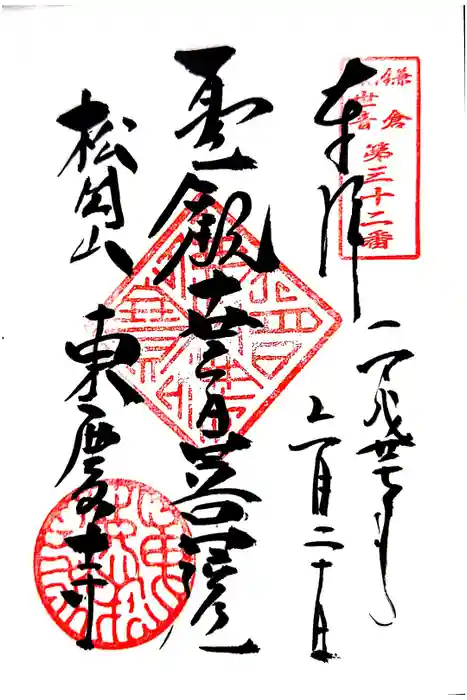 鎌倉
観世音
第三十二番
奉拝
平成廿七年
十一月二十日
聖観世音菩薩
松岡山 東慶寺